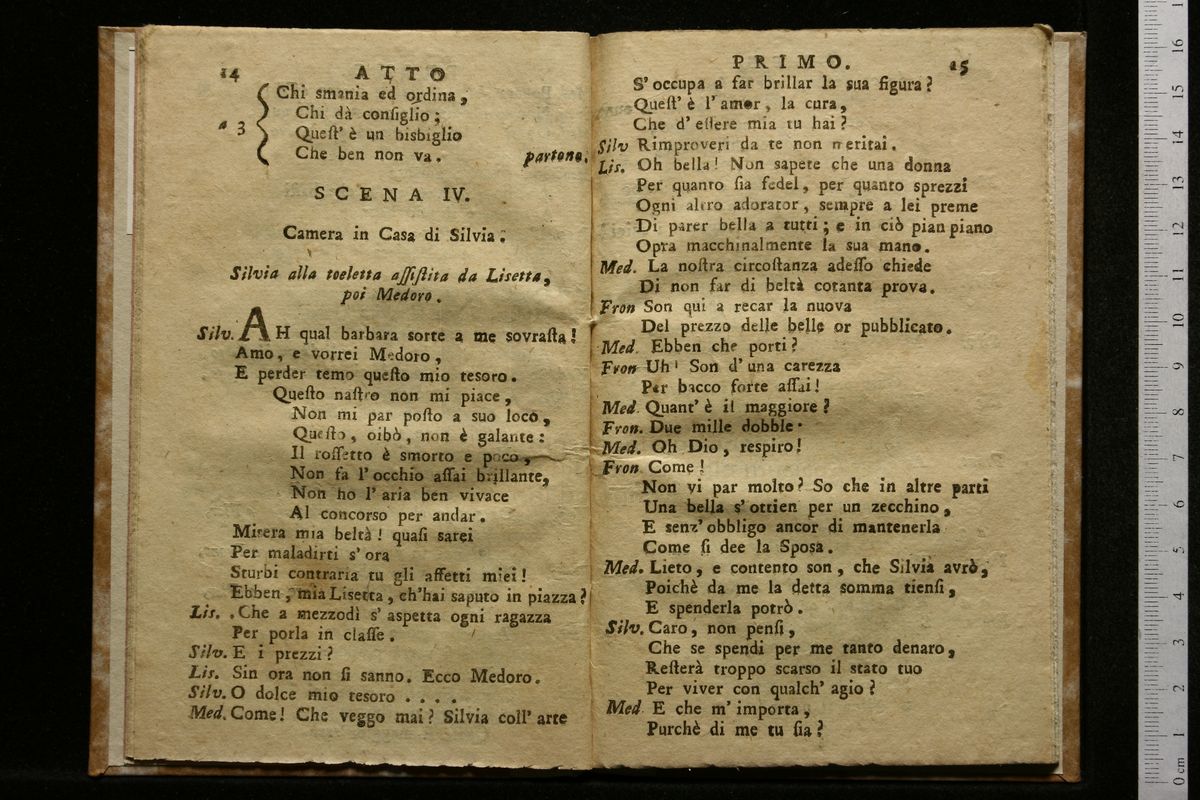 14 ATTO
Chi smania ed ordina,
Chi dà consiglio;
a 3 Quest' è un bisbiglio
Che ben non va. partono.
SCENA IV.
Camera in Casa di Silvia.
Silvia alla toeletta assistita da Lisetta,
poi Medoro.
Silv. AH qual barbara sorte a me sovrasta!
Amo, e vorrei Medoro,
E perder temo questo mio tesoro.
Questo nastro non mi piace,
Non mi par posto a suo loco,
Questo, oibò, non è galante:
Il rossetto è smorto e poco,
Non fa l'occhio assai brillante,
Non ho l'aria ben vivace
Al concorso per andar.
Misera mia beltà! quasi sarei
Per maladirti s'ora
Sturbi contraria tu gli affetti miei!
Ebben, mia Lisetta, ch'hai saputo in piazza?
Lis. Che a mezzodì s'aspetta ogni ragazza
Per porla in classe.
Silv. E i prezzi?
Lis. Sin ora non si sanno. Ecco Medoro.
Silv. O dolce mio tesoro . . . .
Med. Come! Che veggo mai? Silvia coll'arte
PRIMO. 15
S'occupa a far brillar la sua figura?
Quest' è l'amor, la cura,
Che d'essere mia tu hai?
Silv Rimproveri da te non meritai.
Lis. Oh bella! Non sapete che una donna
Per quanto sia fedel, per quanto sprezzi
Ogni altro adorator, sempre a lei preme
Di parer bella a tutti; e in ciò pian piano
Opra macchinalmente la sua mano.
Med. La nostra circostanza adesso chiede
Di non far di beltà cotanta prova.
Fron Son qui a recar la nuova
Del prezzo delle belle or pubblicato.
Med. Ebben che porti?
Fron Uh! Son d'una carezza
Per bacco forte assai!
Med. Quant' è il maggiore?
Fron. Due mille dobble.
Med. Oh Dio, respiro!
Fron Come!
Non vi par molto? So che in altre parti
Una bella s'ottien per un zecchino,
E senz'obbligo ancor di mantenerla
Come si dee la Sposa.
Med. Lieto, e contento son, che Silvia avrò,
Poichè da me la detta somma tiensi,
E spenderla potrò.
Silv. Caro, non pensi,
Che se spendi per me tanto denaro,
Resterà troppo scarso il stato tuo
Per viver con qualch'agio?
Med E che m'importa,
Purchè di me tu sia?
0 cm 1 2 3 4 5 6 7 8 9 10 11 12 13 14 15 16